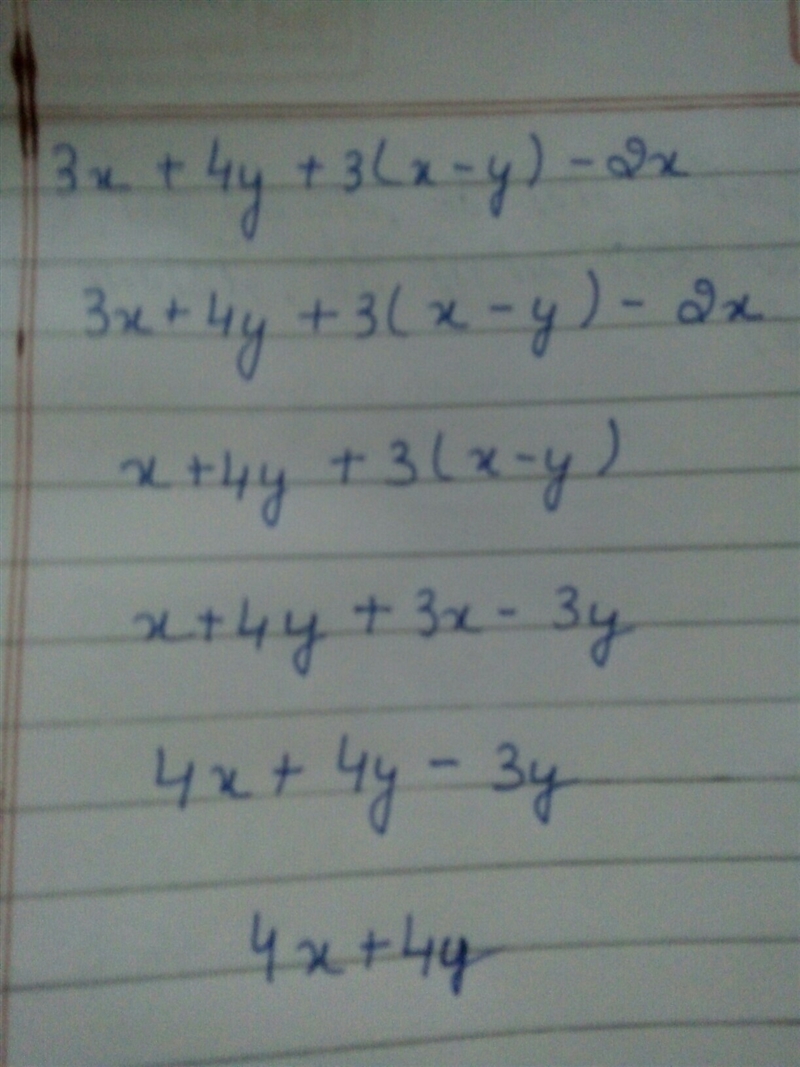 3x + 4y + 3(x - y) - 2x
3x + 4y + 3(x - y) - 2x
x + 4y + 3(x - y)
x + 4y + 3x - 3y
4x + 4y - 3y
4x + 4y